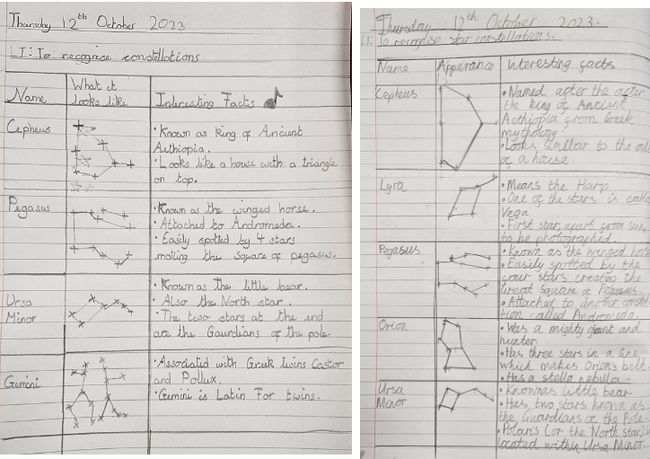 Thursday 12th October 2023
LI: To recognise constellations
Name
What it
looks like
Interesting Facts
Cepheus
• Known as King of Ancient
Aethiopia.
• Looks like a house with a triangle
on top.
Pegasus
• Known as the winged horse.
• Attached to Andromeda.
• Easily spotted by 4 stars
making the Square of pegasus.
Ursa
Minor
• Known as the little bear.
• Also the North star.
• The two stars at the end
are the Gaurdians of the pole.
Gemini
• Associated with Greek twins Castor
and Pollux.
• Gemini is Latin For twins.
Thursday 12th October 2023.
LI: To recognise star constellations.
Name
Appearance
Interesting facts
Cepheus
• Named after the after
the king of Ancient
Aethiopia from Greek
mythology
• Looks similar to the
of a house.
Lyra
• Means the Harp
• One of the stars is
Vega
• First star, apart from sun,
to be photographed.
Pegasus
• Known as the winged
• Easily spotted by the
four stars creating the
Great Square of Pegasus.
• Attached to another
tion called Andromeda.
Orion
• Was a mighty giant and
hunter.
• Has three stars in a line
which makes Orion's belt.
• Has a stella nebula.
Ursa
Minor
• Known as little bear.
• Has two stars known as
the Guardians of the Pole.
• Polaris (or the North star) is
located within Ursa Minor.